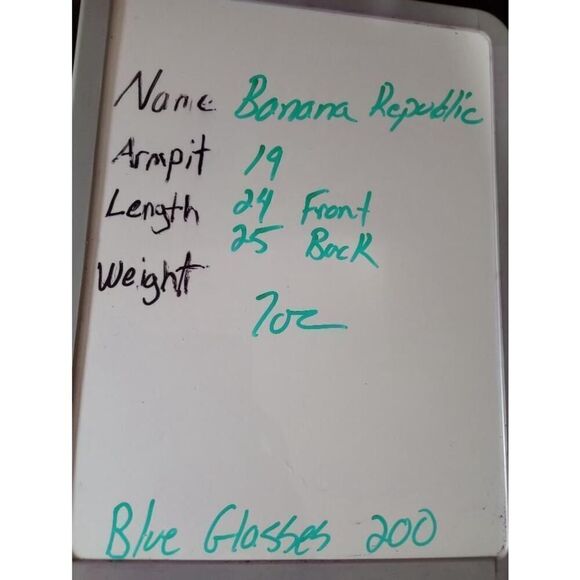 Name Banana Republic
Armpit 19
Length 24 Front
25 Back
Weight
7oz
Blue Glasses 200